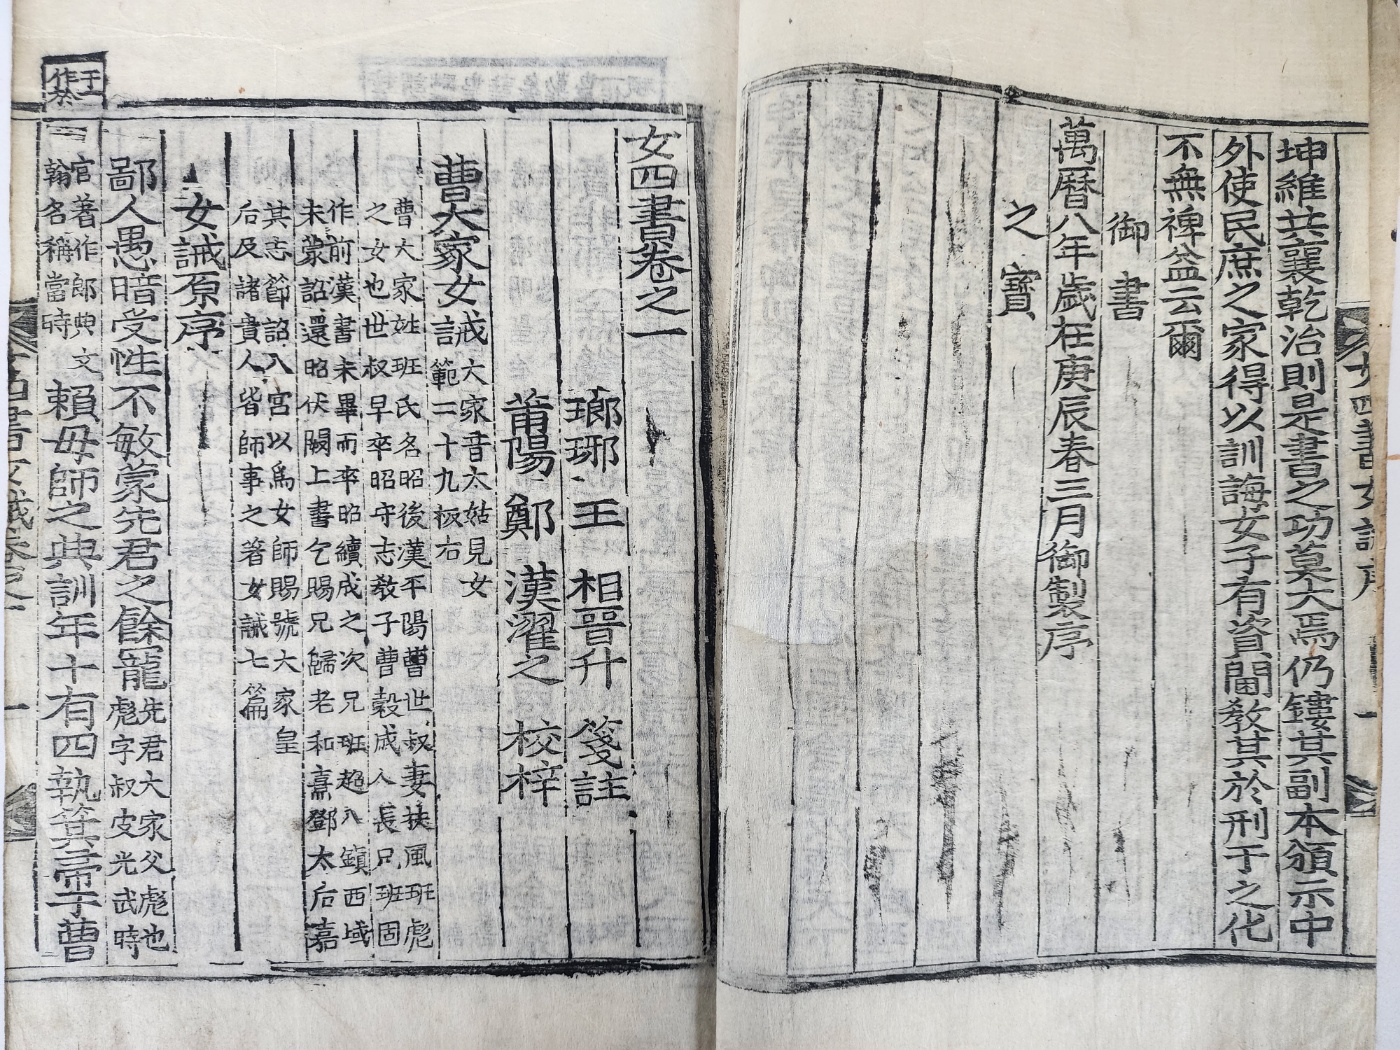 坤維共襄乾治則是書之功莫大焉仍鏤其副本頒示中
外使民庶之家得以訓誨女子有資閫教其於刑于之化
不無裨益云爾
御書
萬曆八年歲在庚辰春三月御製序
之寶
女四書卷之一
瑯琊王相晉升箋註
莆陽鄭漢濯之校梓
曹大家女誡
大家音太姑見女
範二十九板右
曹大家姓班氏名昭後漢平陽曹世叔妻扶風班彪
之女也世叔早卒昭守志教子曹穀成人長兄班固
作前漢書未畢而卒昭續成之次兄班超久鎮西域
未蒙詔還昭伏闕上書乞賜兄歸老和熹鄧太后嘉
其志節詔入宮以爲女師賜號大家皇
后及諸貴人皆師事之著女誡七篇
女誡原序
鄙人愚暗受性不敏蒙先君之餘寵
先君大家父彪也
彪字叔皮光武時
官著作郎典文
翰名稱當時
賴母師之典訓年十有四執箕帚于曹